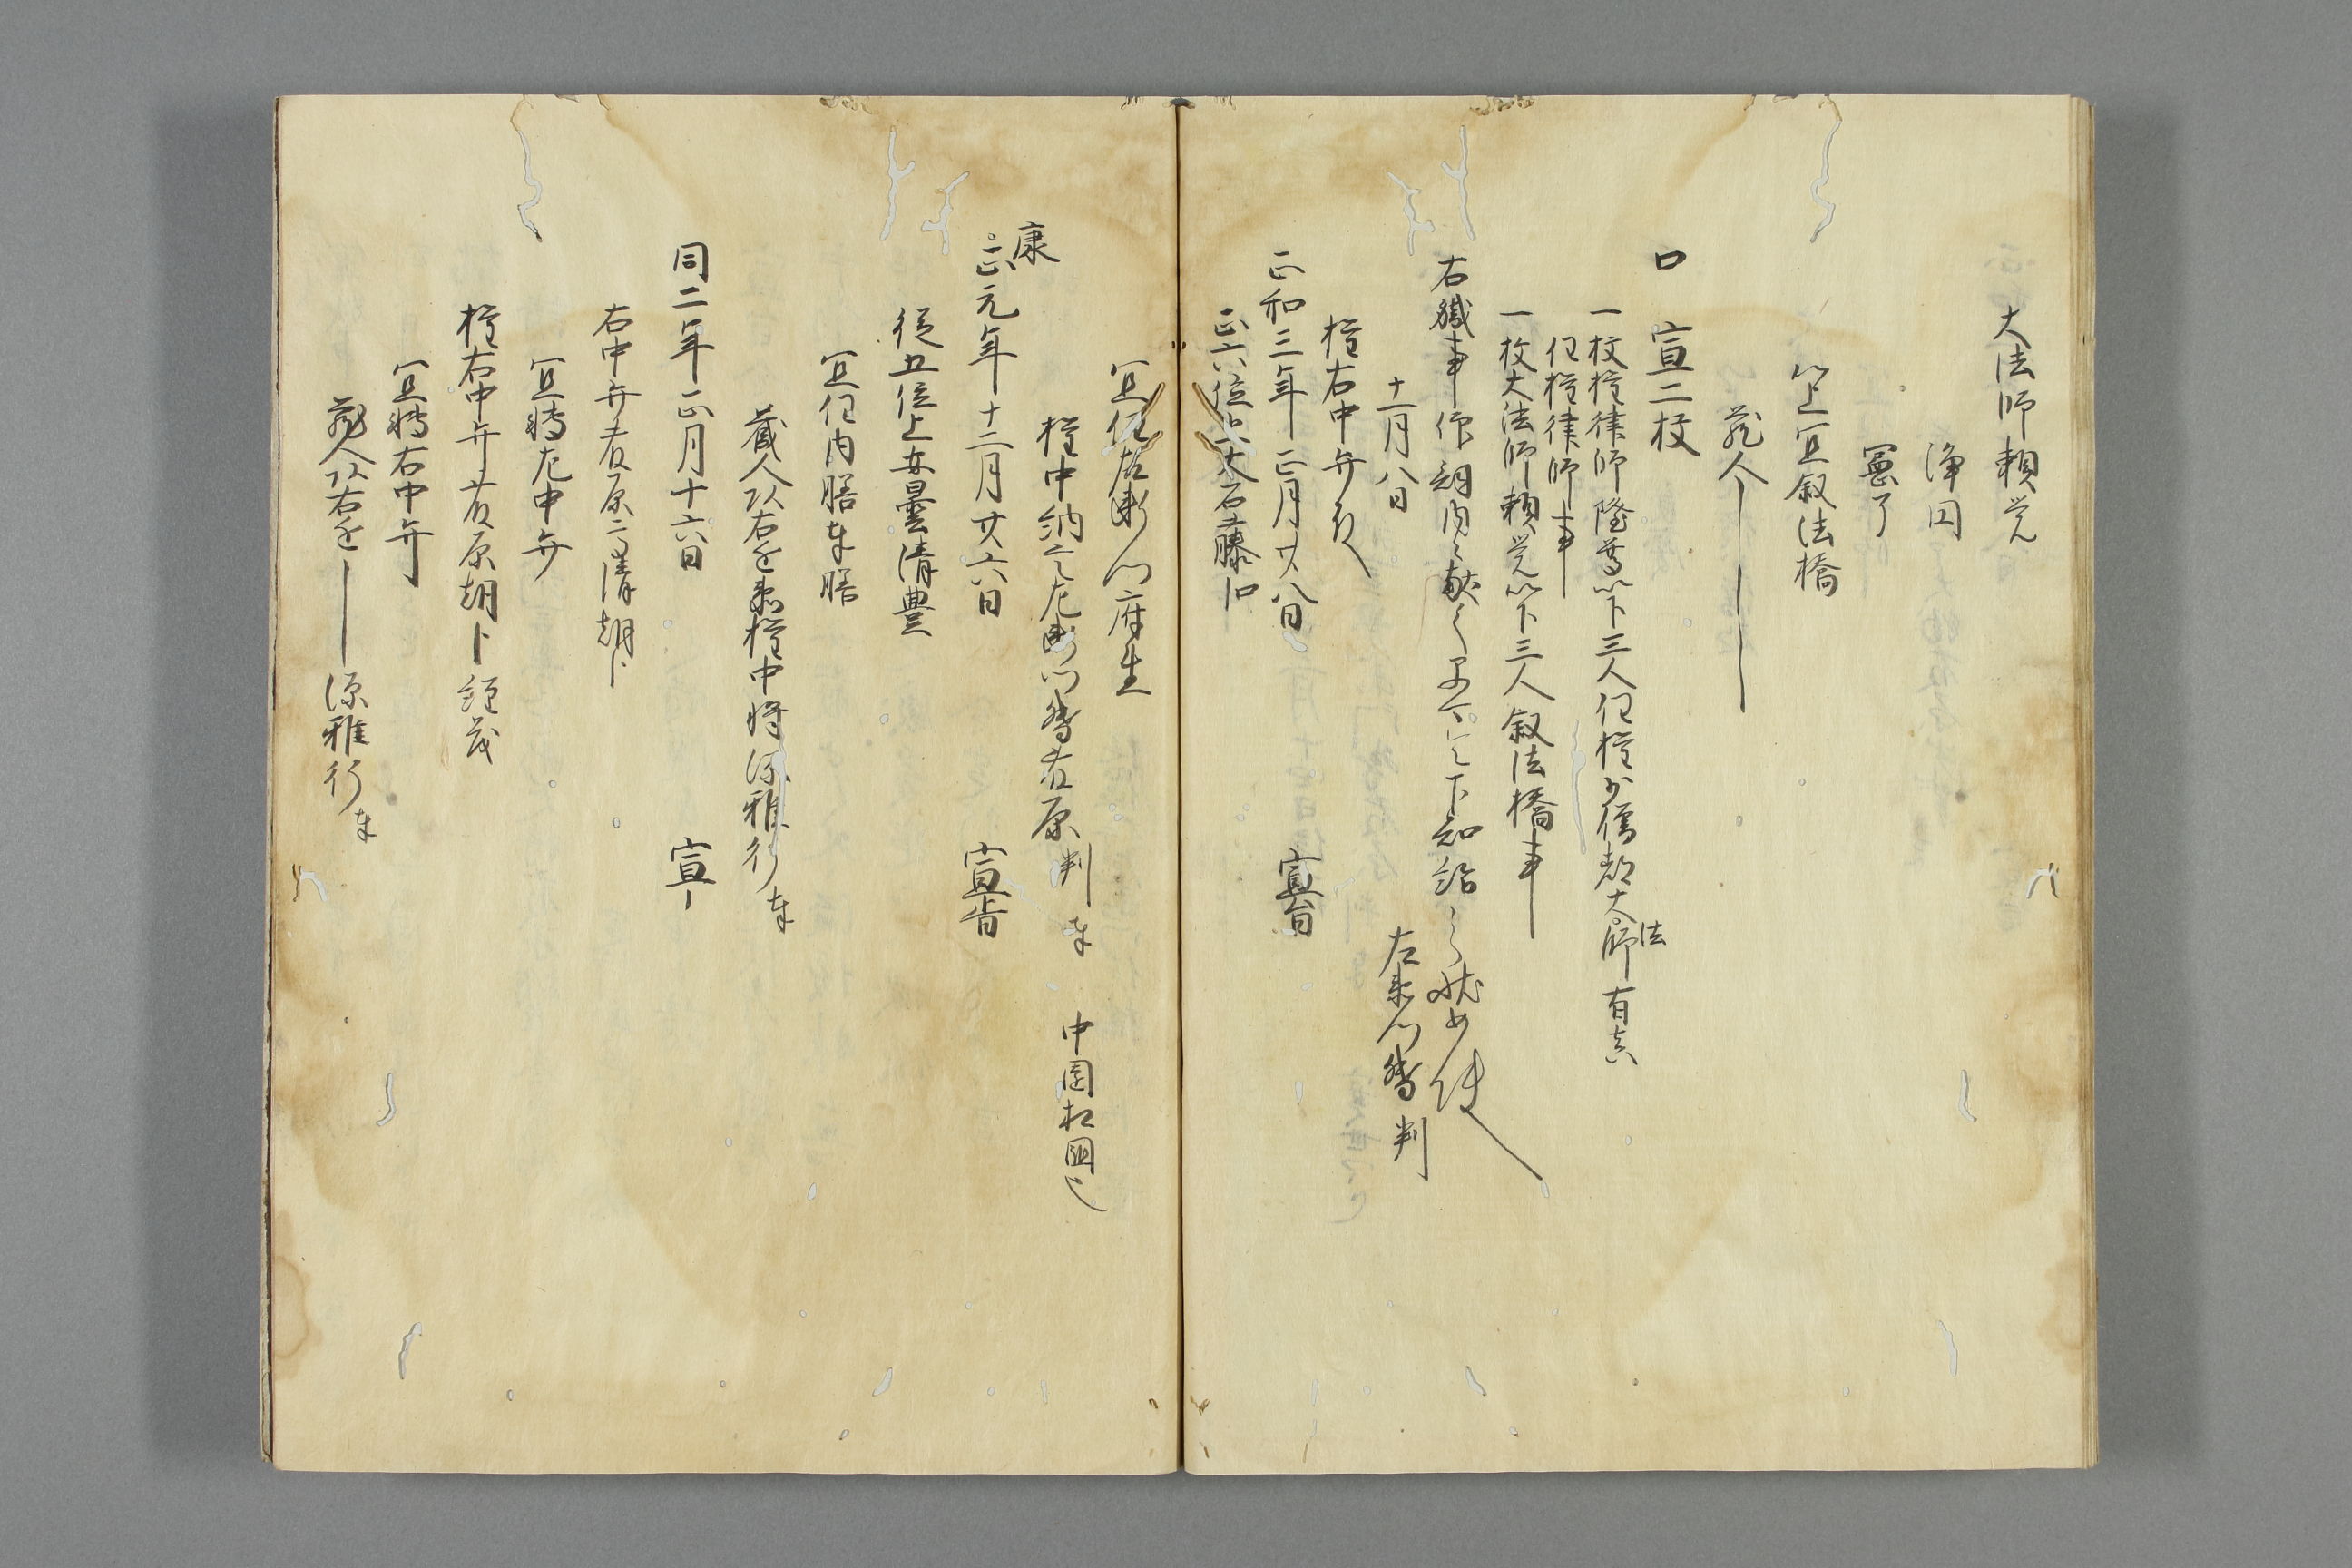 大法師頼覚
浄円
憲了
以上宜叙法橋
蔵人
口宣二枚
一枚権律師隆尊以下三人任権少僧都大法師有真
任権律師事
一枚大法師頼覚以下三人叙法橋事
右職事仰詞内々献之早可令下知給之状如件
十一月八日　左衛門督判
権右中弁殿
正和三年正月廿八日　宣旨
正六位上大石藤沢
宜任左衛門府生
権中納言左衛門督藤原判奉　中園相国也
康
正元年十二月廿六日　宣旨
従五位上安曇清豊
宜任内膳奉膳
蔵人頭右近衛権中将源雅行奉
同二年正月十六日　宣
右中弁藤原清朝卜
宜転左中弁
権右中弁藤原朝卜経茂
宜転右中弁
蔵人頭右近　源雅行奉